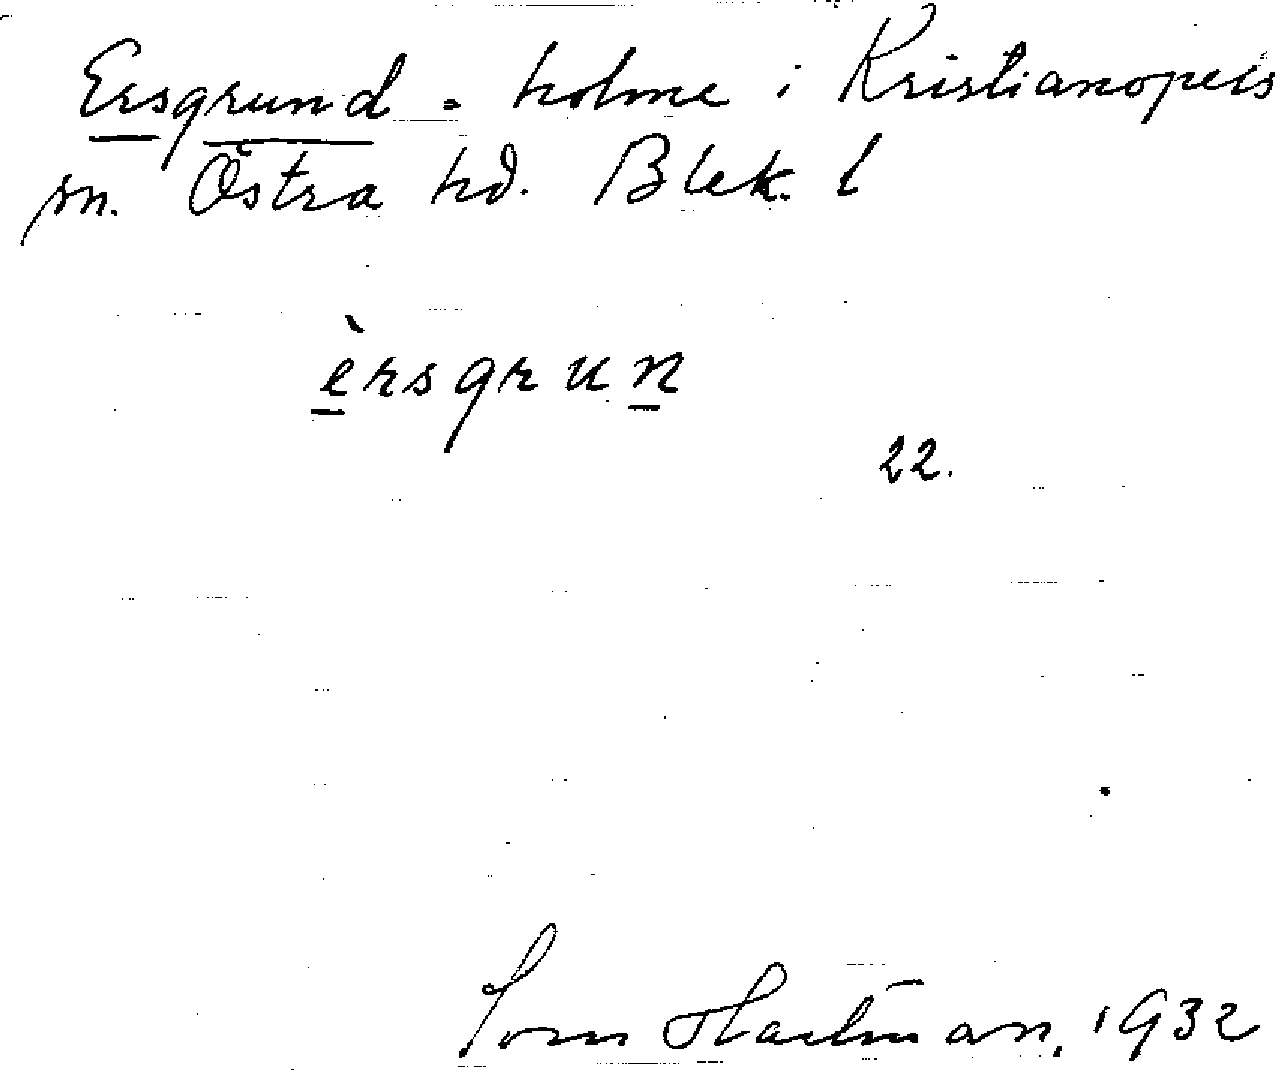 Ersgrund = holme i Kristianopels
sn. Östra hd. Blek. l
èrsgrun
22.
Hartman, 1932